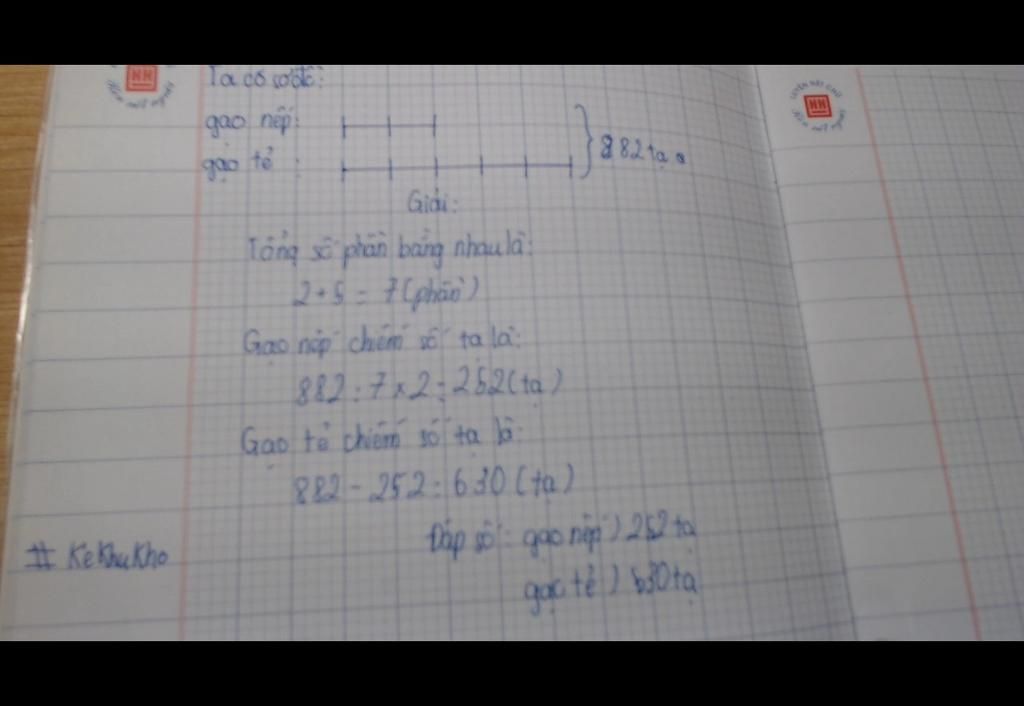 Ta có sơ đồ:
gạo nếp:
gạo tẻ : 882 tạ
Giải:
Tổng số phần bằng nhau là:
2+5 = 7 (phần)
Gạo nếp chiếm số tạ là:
882 : 7 × 2 = 252 (tạ)
Gạo tẻ chiếm số tạ là:
882 - 252 = 630 (tạ)
Đáp số: gạo nếp) 252 tạ
gạo tẻ) 630 tạ
# KeKhuKho
HN
HN